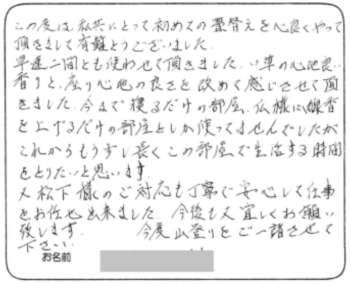 この度は、私共にとって初めての畳替えを心良くやって
頂きまして有難とうございました。
早速二間とも使わせて頂きました。い草の心地良い
香りと、座り心地の良さを改めて感じさせて頂
きました。今まで寝るだけの部屋、仏様に線香
を上げるだけの部屋としか使ってませんでしたが
これからもう少し長くこの部屋で生活する時間
をとりたいと思います。
又松下様のご対応も丁寧で安心して仕事
をお任せ出来ました。今後も又宜しくお願い
致します。 今度山登りをご一諸させて
下さい。
お名前